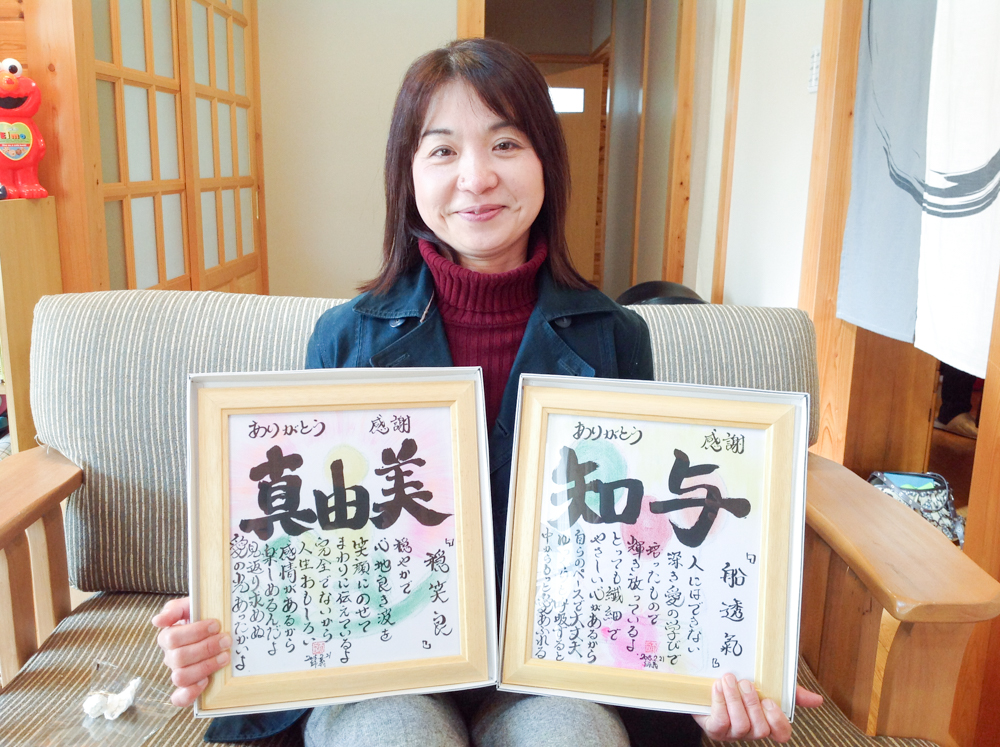 ありがとう 感謝
真由美
『穏笑良』
穏やかで
心地良き波を
笑顔にのせて
まわりに伝えているよ
完全でないから
人生おもしろい
感情があるから
楽しめるんだよ
見返り求めぬ
愛の光あったかいよ
ありがとう 感謝
知与
『船透氣』
人にはできない
深き愛の学びで
培ったもので
輝き放っているよ
とっても繊細で
やさしい心があるから
自らのペースで大丈夫
呼吸すると
中からもっと あふれる